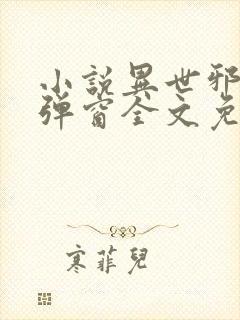 小説異世邪
彈窗全文免
寒菲兒